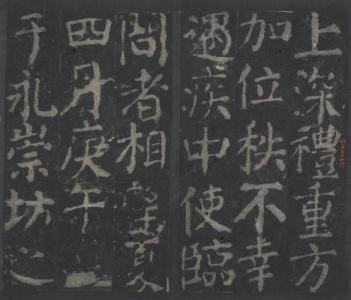 上深禮重方
加位秩不幸
遇疾中使臨
問者相望夏
四月庚午
于永崇坊之